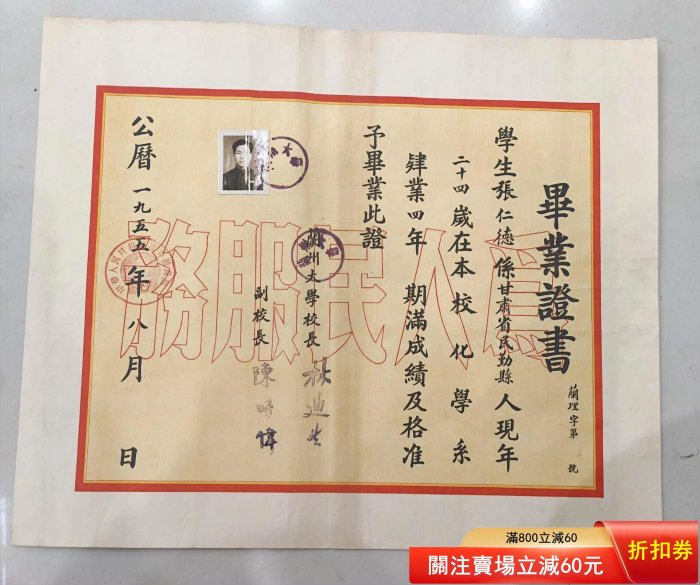 畢業證書
蘭理字第 號
學生張仁德係甘肅省民勤縣人現年
二十四歲在本校化學系
肄業四年期滿成績及格准
予畢業此證
蘭州大學校長 林迪生
副校長 陳時偉
公曆一九五五年八月 日
為人民服務
滿800立減60
關注賣場立減60元
折扣券